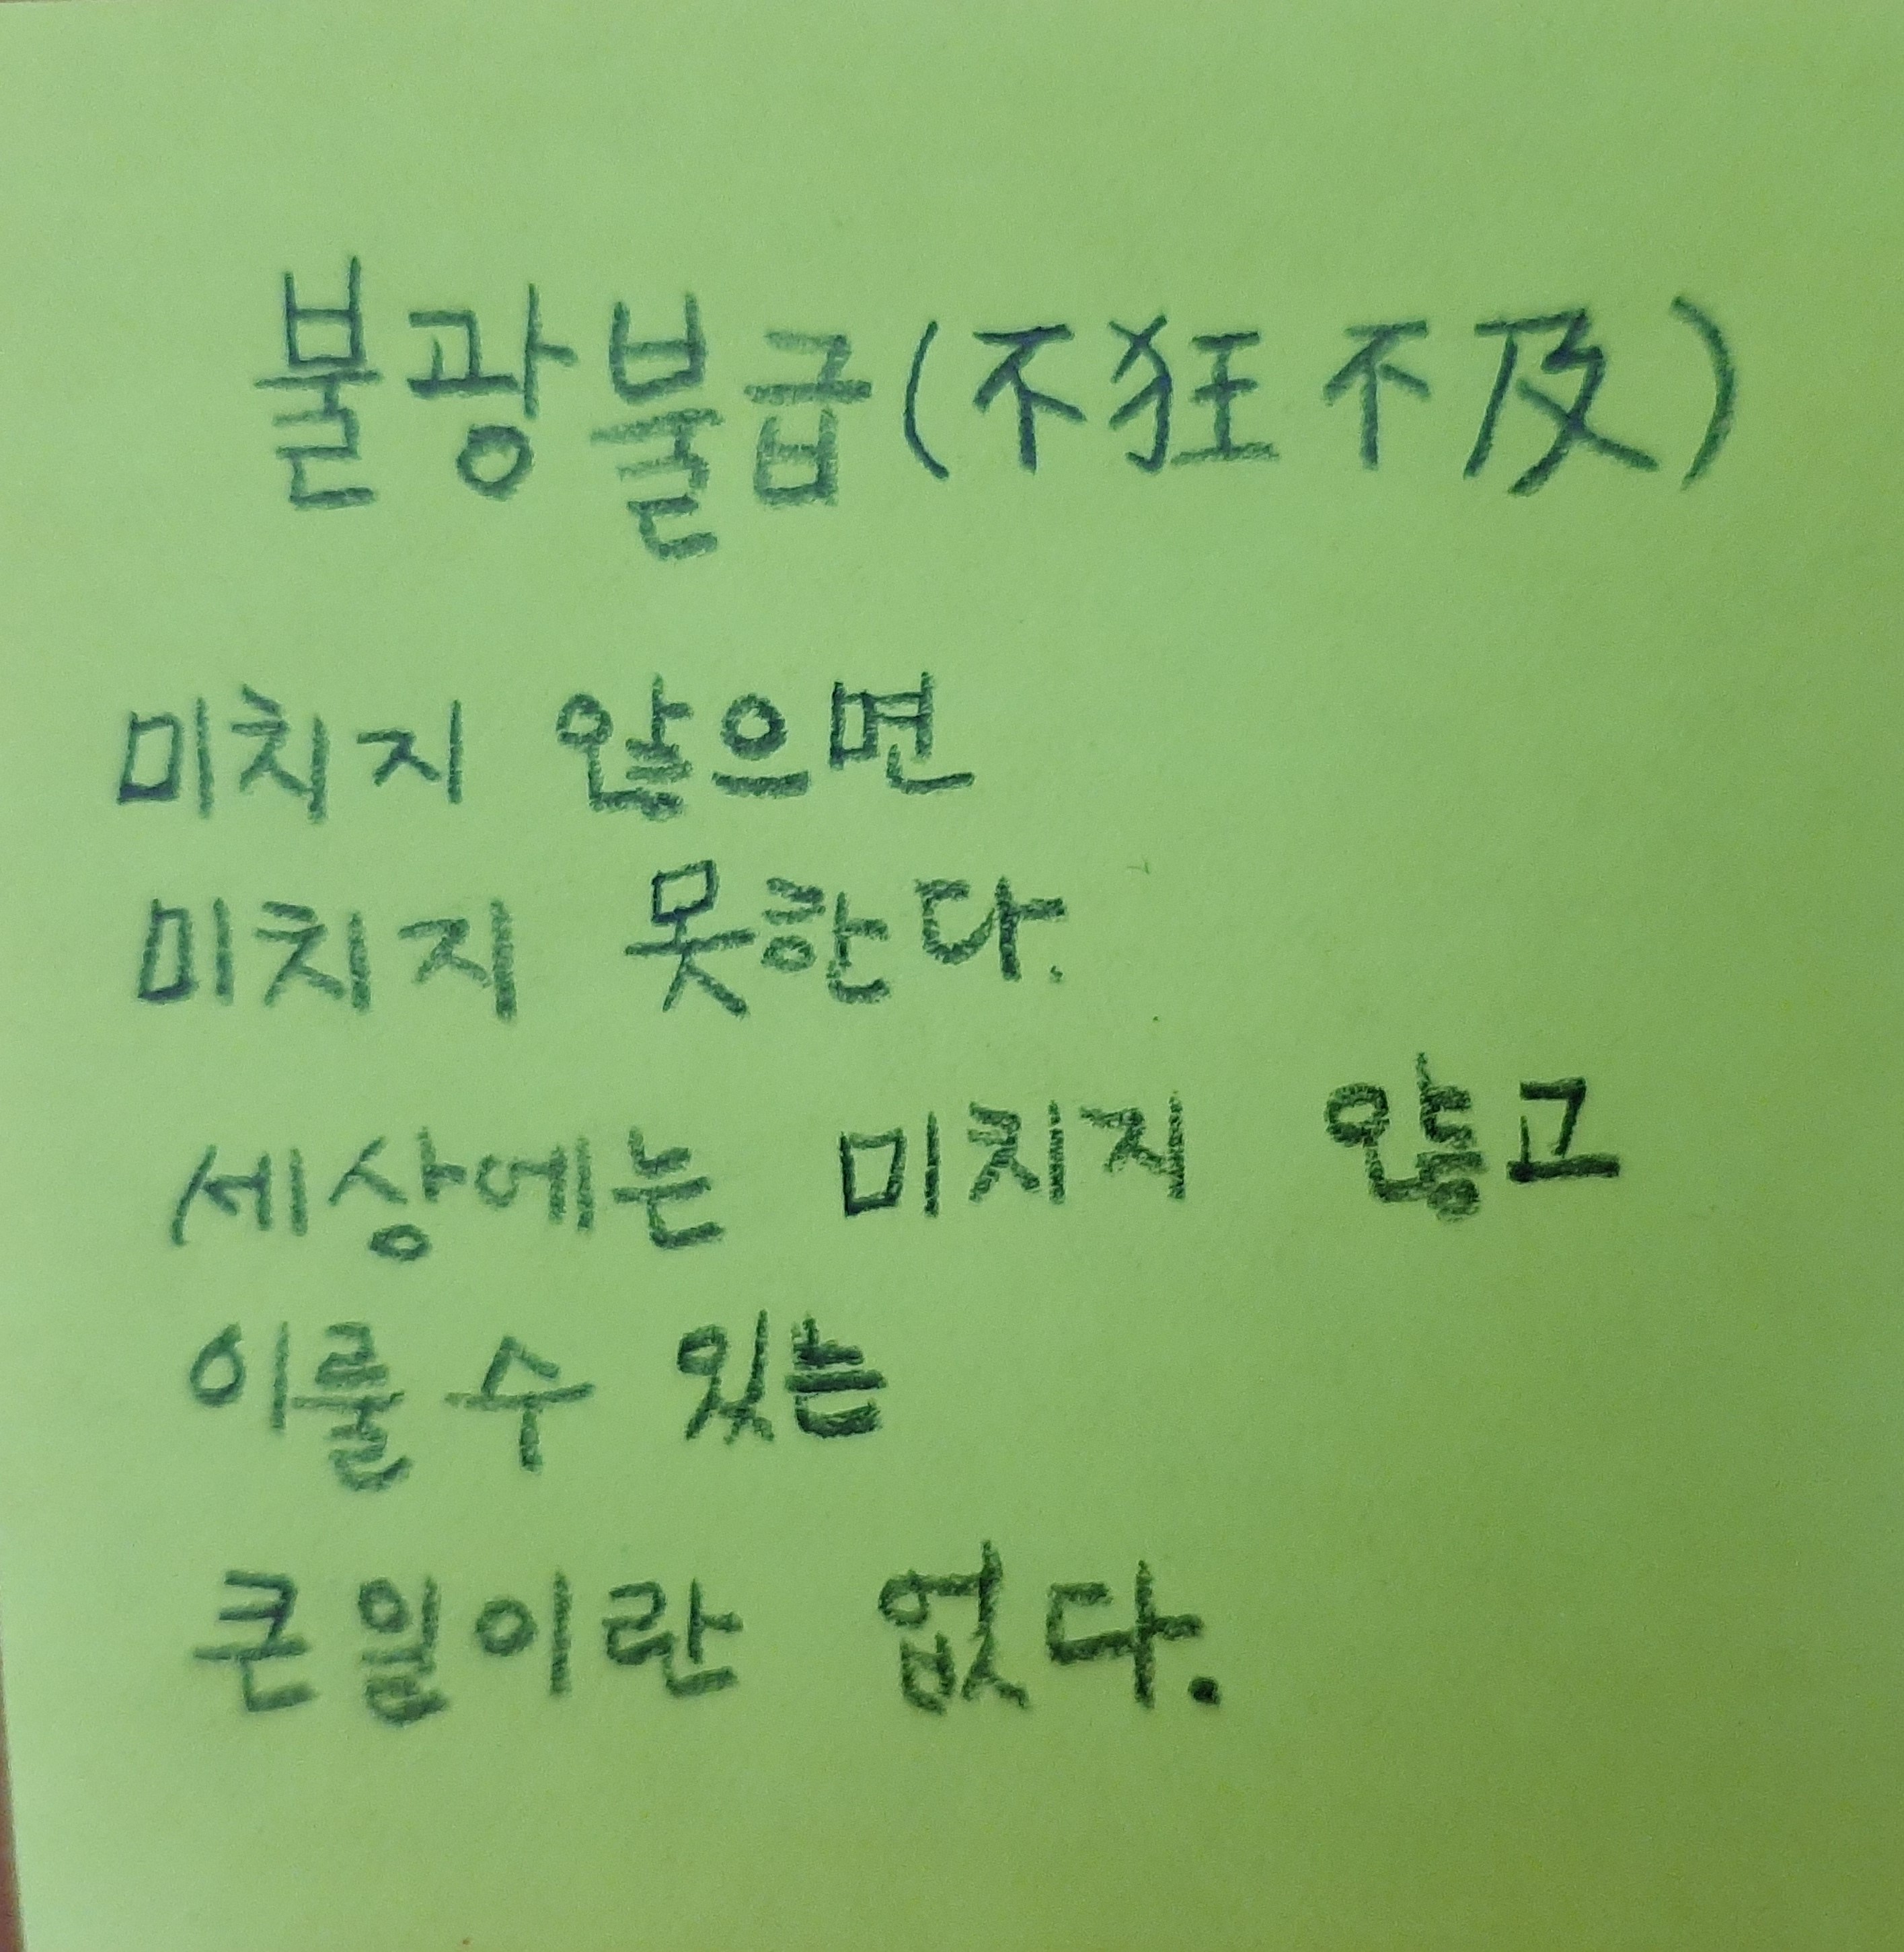 불광불급(不狂不及)
미치지 않으면
미치지 못한다.
세상에는 미치지 않고
이룰 수 있는
큰일이란 없다.